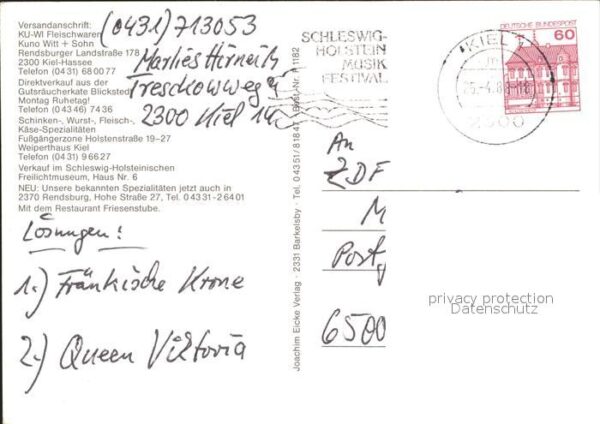 Versandanschrift:
KU-WI Fleischwaren
Kuno Witt + Sohn
Rendsburger Landstraße 178
2300 Kiel-Hassee
Telefon (04 31) 68 00 77
Direktverkauf aus der
Gutsräucherkate Blickstedt
Montag Ruhetag!
Telefon (0 43 46) 74 36
Schinken-, Wurst-, Fleisch-,
Käse-Spezialitäten
Fußgängerzone Holstenstraße 19–27
Weiperthaus Kiel
Telefon (04 31) 9 66 27
Verkauf im Schleswig-Holsteinischen
Freilichtmuseum, Haus Nr. 6
NEU: Unsere bekannten Spezialitäten jetzt auch in
2370 Rendsburg, Hohe Straße 27, Tel. 0 43 31-2 64 01
Mit dem Restaurant Friesenstube.
(0431) 713053
Marlies
Tresckowweg
2300 Kiel 14
Lösungen!
1.) Fränkische Krone
2.) Queen Viktoria
Joachim Eicke Verlag - 2331 Barkelsby - Tel. 0 43 51 / 8 18 47 1182
SCHLESWIG-
HOLSTEIN
MUSIK
FESTIVAL
KIEL 1
2300
DEUTSCHE BUNDESPOST
60
An
ZDF
M
Postf
6500
privacy protection
Datenschutz